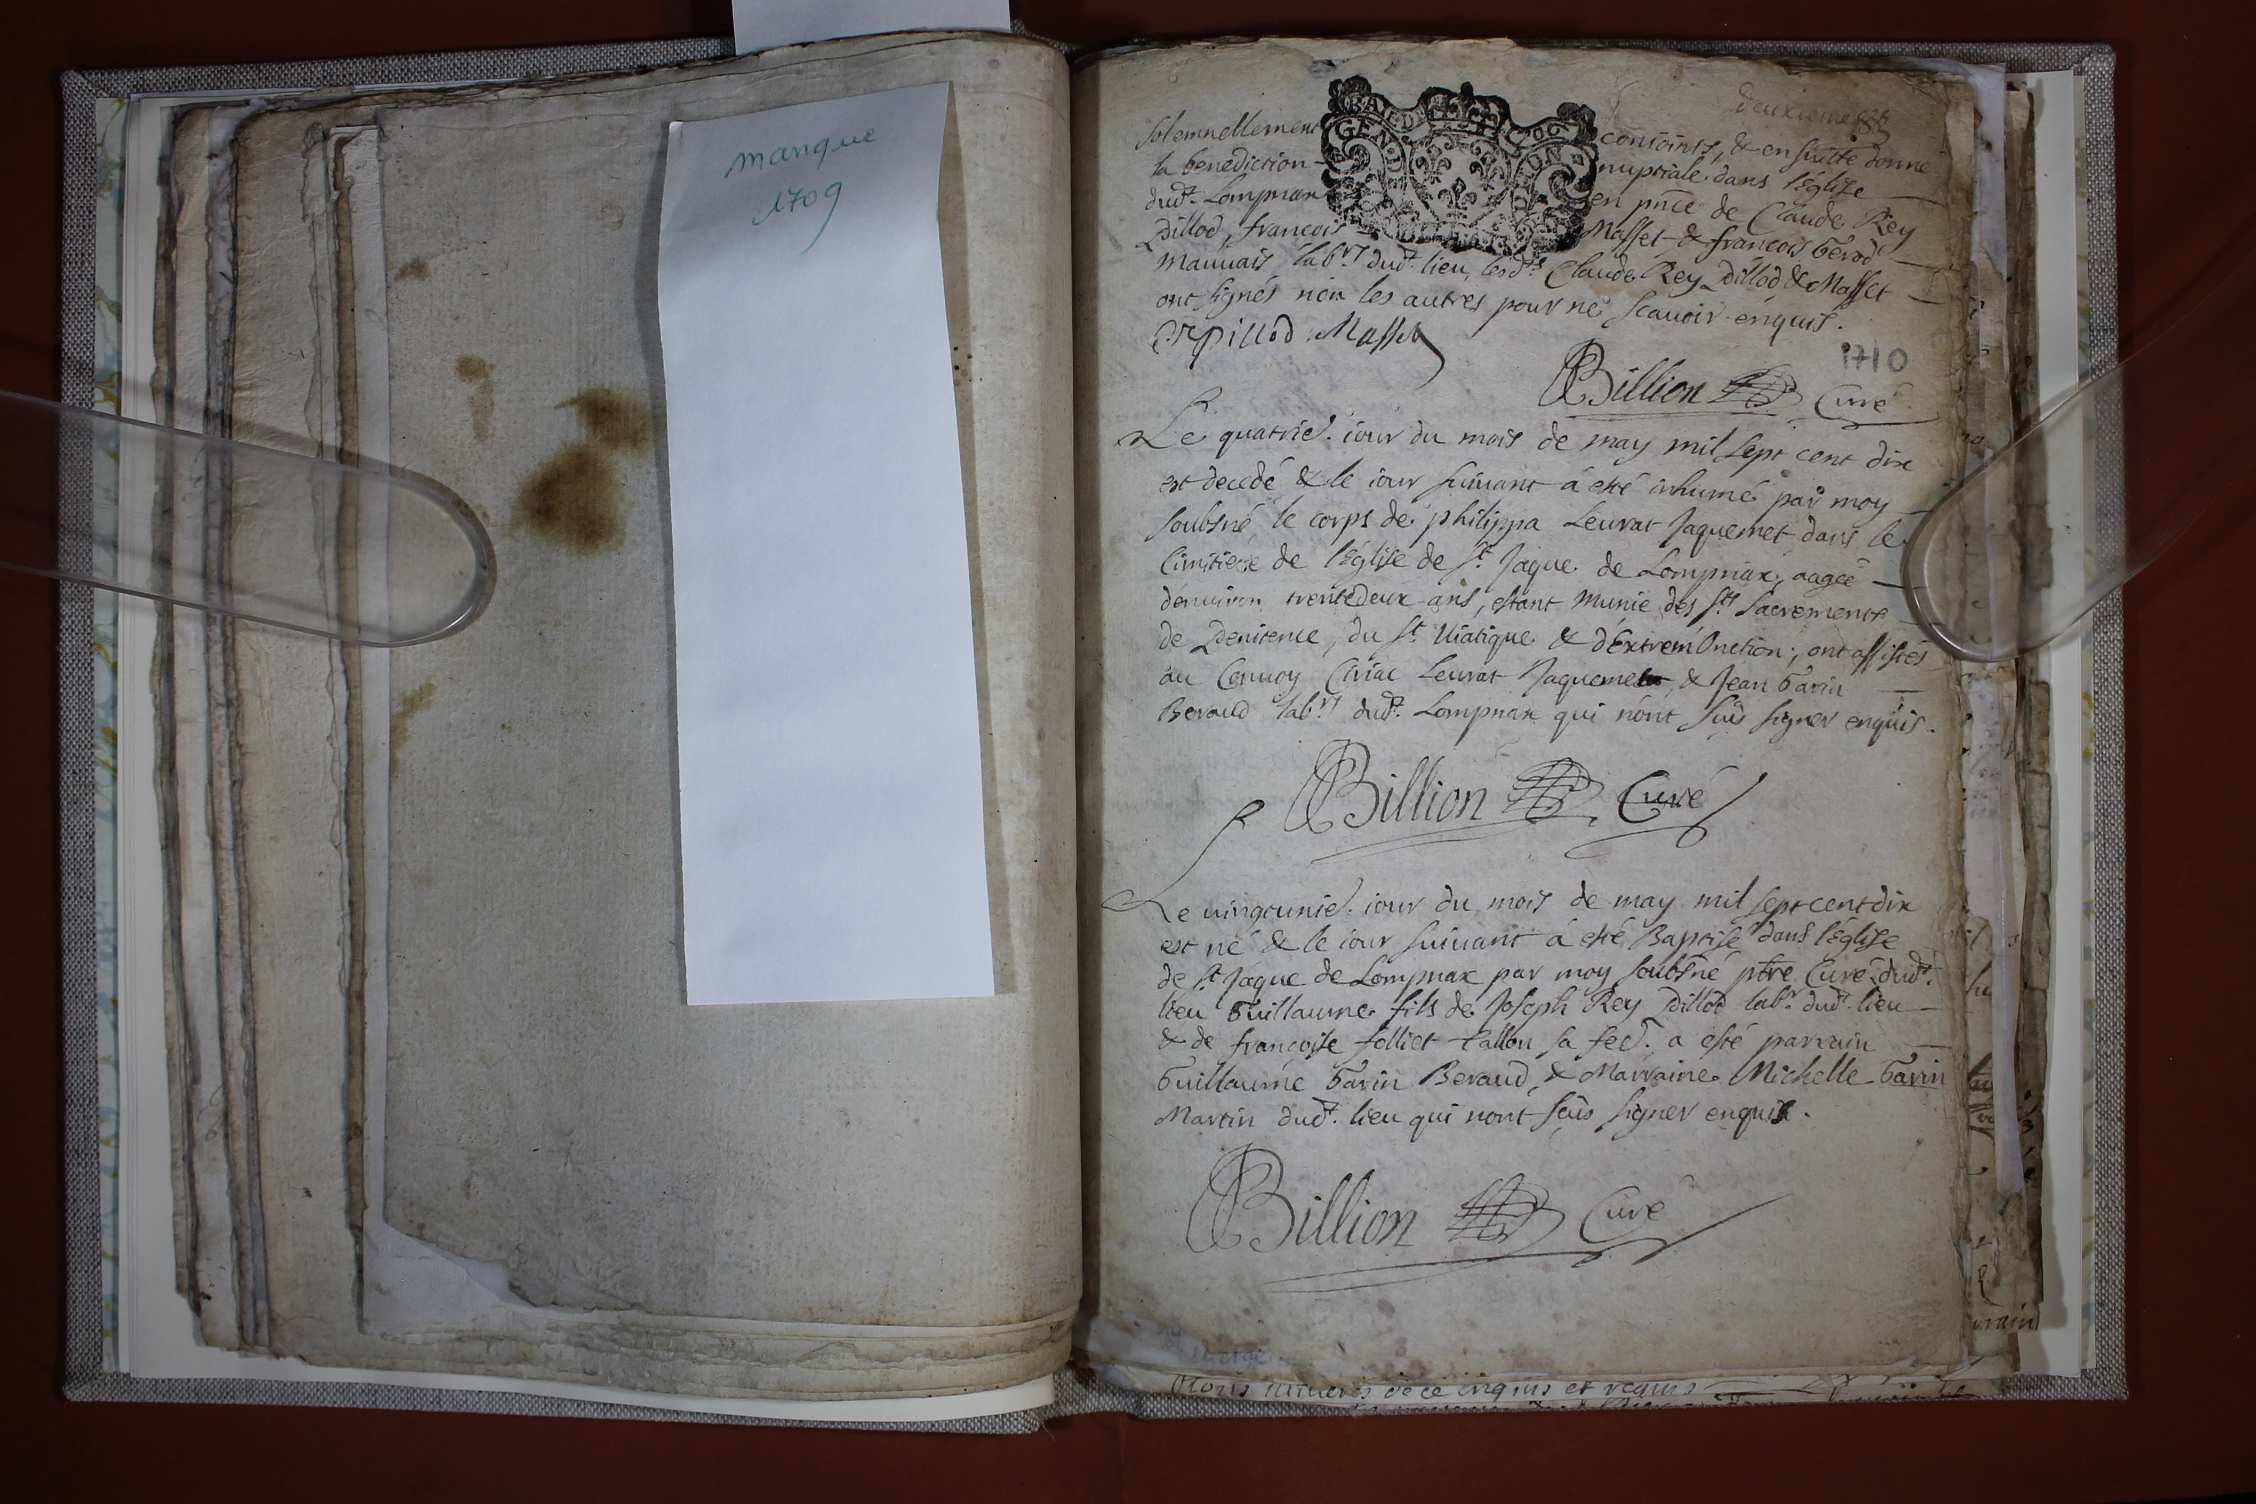 manque
1709
deuxieme
solemnellement conioints, & en suitte donné
la benediction nuptiale dans l'Église
dud.t Lompnax en pñce de Claude Rey
Pillod, francois Masset & francois Gerod
Mauuais lab.rs dud.t lieu, lesd.ts Claude Rey Pillod & Masset
ont signés non les autres pour ne scauoir enquis.
C. R pillod Masset
1710
Billion Curé
Le quatrie.e iour du mois de may mil sept cent dix
est decedé & le iour suiuant á esté inhumé par moy
soubsné le corps de philippa Leurat Jaquemet dans le
Cimitiere de l'Église de s.t Jaque de Lompnax, aagée
denuiron trentedeux ans, estant munie des s.ts Sacrements
de Penitence, du s.t Uiatique & d'Extrem'Onction; ont assistés
au Conuoy Ciriac Leurat Jaquemet & Jean Garin
Beraud lab.rs dud.t Lompnax qui nont sçus signer enquis.
Billion Curé
Le uingtunie.e iour du mois de may mil sept cent dix
est né & le iour suiuant á esté Baptisé dans l'Église
de s.t Jaque de Lompnax par moy soubsné ptre Curé dud.t
lieu Guillaume fils de Joseph Rey Pillod lab.r dud.t lieu
& de francoise folliet tallon sa fee. a esté parrain
Guillaume Garin Beraud & Marraine Michelle Garin
Martin dud.t lieu qui nont sçus signer enquis.
Billion Curé
et requis